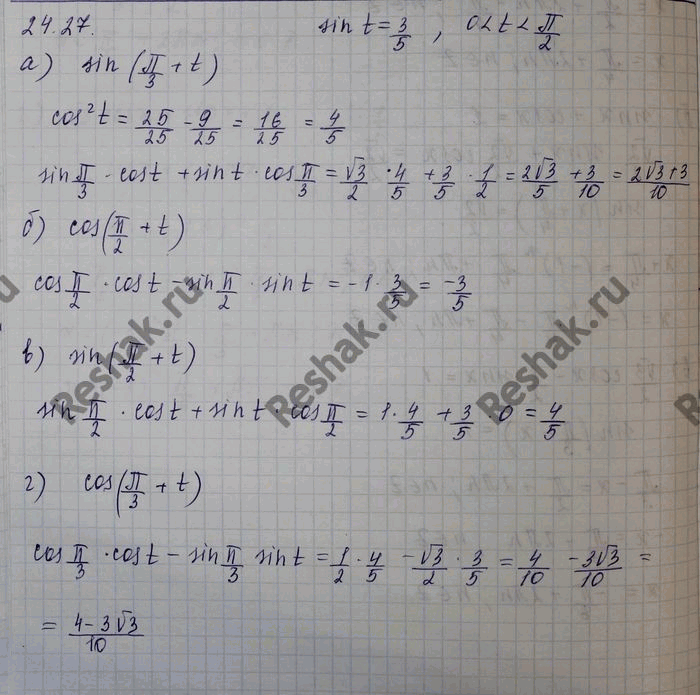 24.27. sin t = 3/5 , 0 < t < π/2
а) sin (π/3 + t)
cos²t = 25/25 - 9/25 = 16/25 = 4/5
sin π/3 · cos t + sin t · cos π/3 = √3/2 · 4/5 + 3/5 · 1/2 = 2√3/5 + 3/10 = 2√3+3/10
б) cos(π/2 + t)
cos π/2 · cos t - sin π/2 · sin t = -1 · 3/5 = -3/5
в) sin(π/2 + t)
sin π/2 · cos t + sin t · cos π/2 = 1 · 4/5 + 3/5 · 0 = 4/5
г) cos(π/3 + t)
cos π/3 · cos t - sin π/3 sin t = 1/2 · 4/5 - √3/2 · 3/5 = 4/10 - 3√3/10 =
= 4-3√3/10
Reshak.ru
Reshak.ru
Reshak.ru